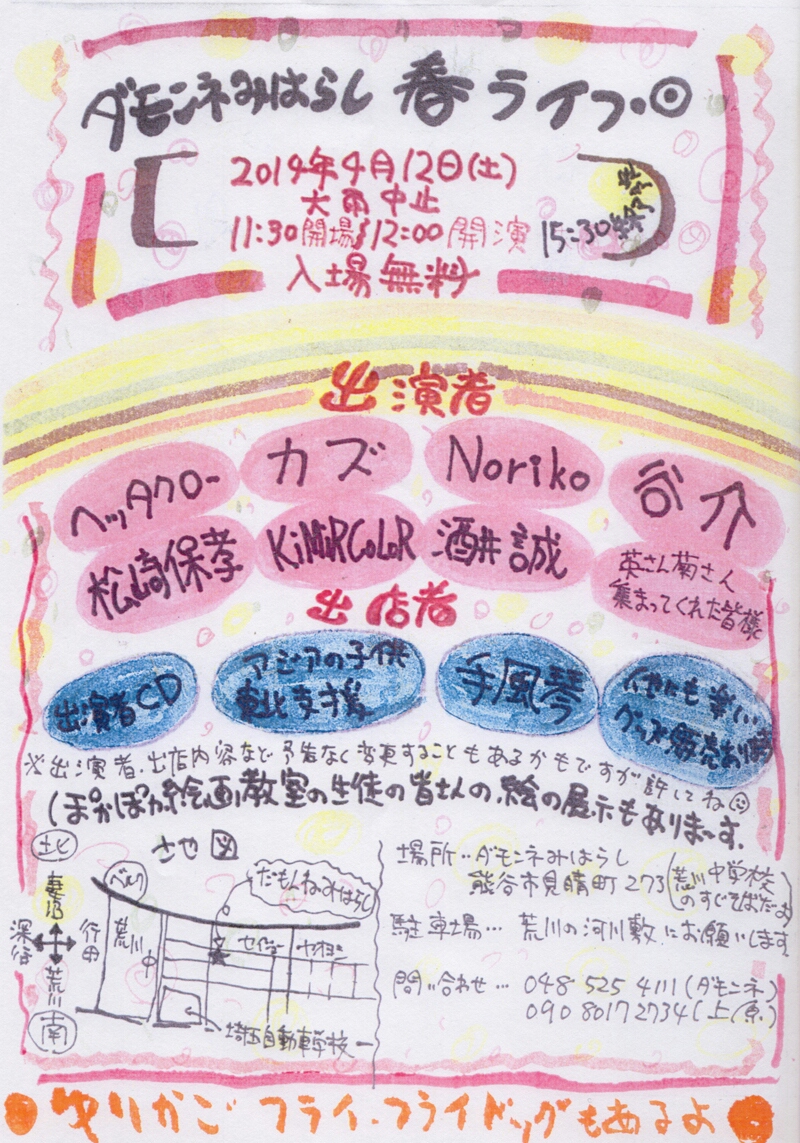 ダモンネみはらし 春ライブ・◎
2014年4月12日(土)
大雨中止
11:30開場 12:00開演 15:30終了予定
入場無料
出演者
ヘッタクロー カズ Noriko 谷介
松崎保孝 KiMiRCoLoR 酒井誠 英さん菊さん
集まってくれた皆様
出店者
出演者CD アジアの子供
東北支援 手風琴 他にも楽しい
グッズ販売あり
※出演者、出店内容など予告なく変更することもあるかもですが許してね
(ぽかぽか絵画教室の生徒の皆さんの、絵の展示もありまーす。
北 さち図
ベルク だもんねみはらし
妻沼
深谷 行田 荒川
南
荒川中 文 セイムー ヤオヨシ
埼玉自動車学校
場所…ダモンネみはらし
熊谷市見晴町273(荒川中学校
のすぐそばだよ)
駐車場… 荒川の河川敷にお願いします
問い合わせ… 048 525 4111(ダモンネ)
090 8017 2734(上原)
ゆりかご フライ・フライドッグもあるよ